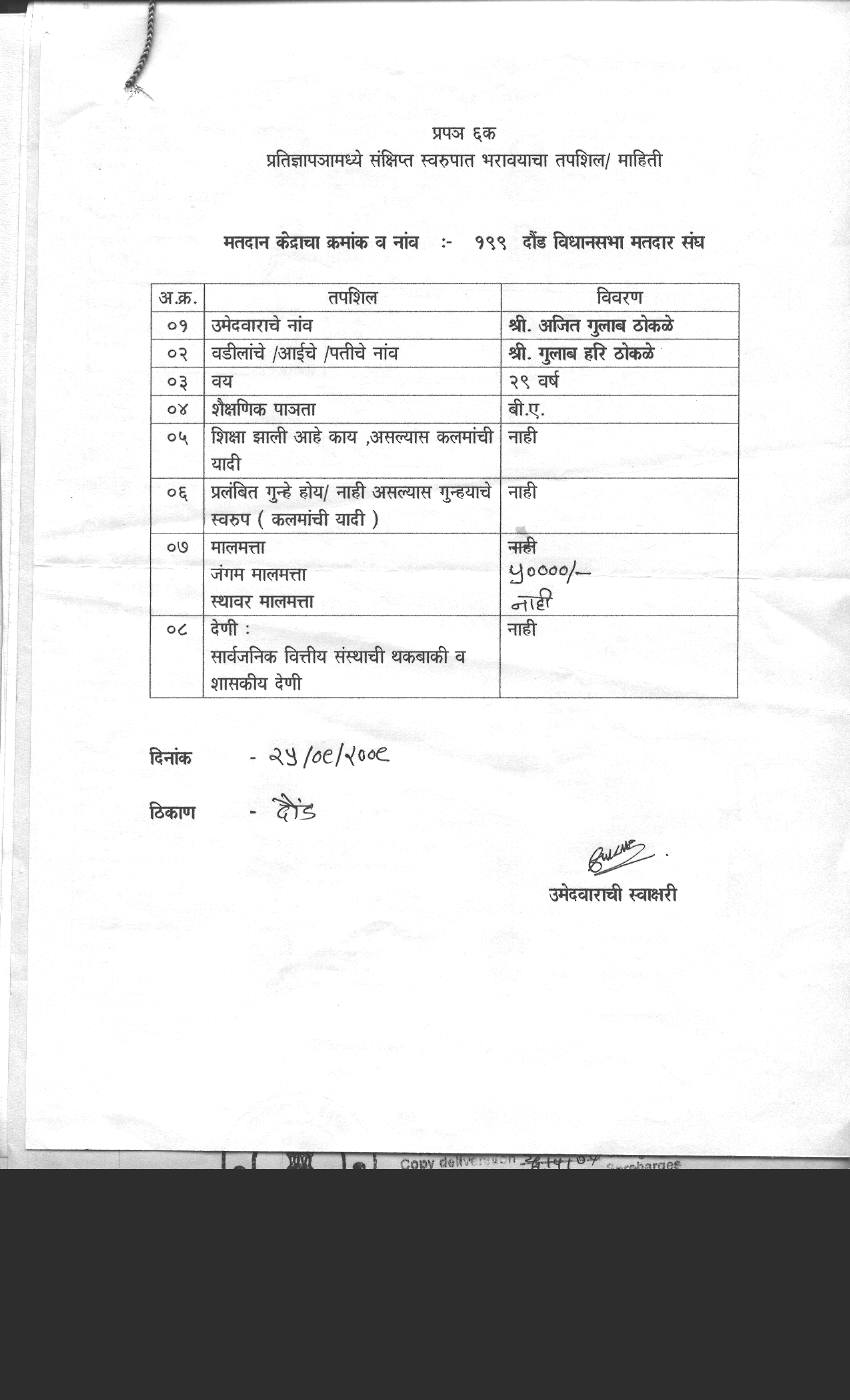 प्रपञ ६क
प्रतिज्ञापञामध्ये संक्षिप्त स्वरुपात भरावयाचा तपशिल/ माहिती
मतदान केद्राचा क्रमांक व नांव :- १९९ दौंड विधानसभा मतदार संघ
अ.क्र. तपशिल विवरण
०१ उमेदवाराचे नांव श्री. अजित गुलाब ठोकळे
०२ वडीलांचे /आईचे /पतीचे नांव श्री. गुलाब हरि ठोकळे
०३ वय २९ वर्ष
०४ शैक्षणिक पाञता बी.ए.
०५ शिक्षा झाली आहे काय ,असल्यास कलमांची नाही
यादी
०६ प्रलंबित गुन्हे होय/ नाही असल्यास गुन्हयाचे नाही
स्वरुप ( कलमांची यादी )
०७ मालमत्ता नाही
जंगम मालमत्ता ५००००/-
स्थावर मालमत्ता नाही
०८ देणी : नाही
सार्वजनिक वित्तीय संस्थाची थकबाकी व
शासकीय देणी
दिनांक - २५/०९/२००९
ठिकाण - दौंड
उमेदवाराची स्वाक्षरी
Copy